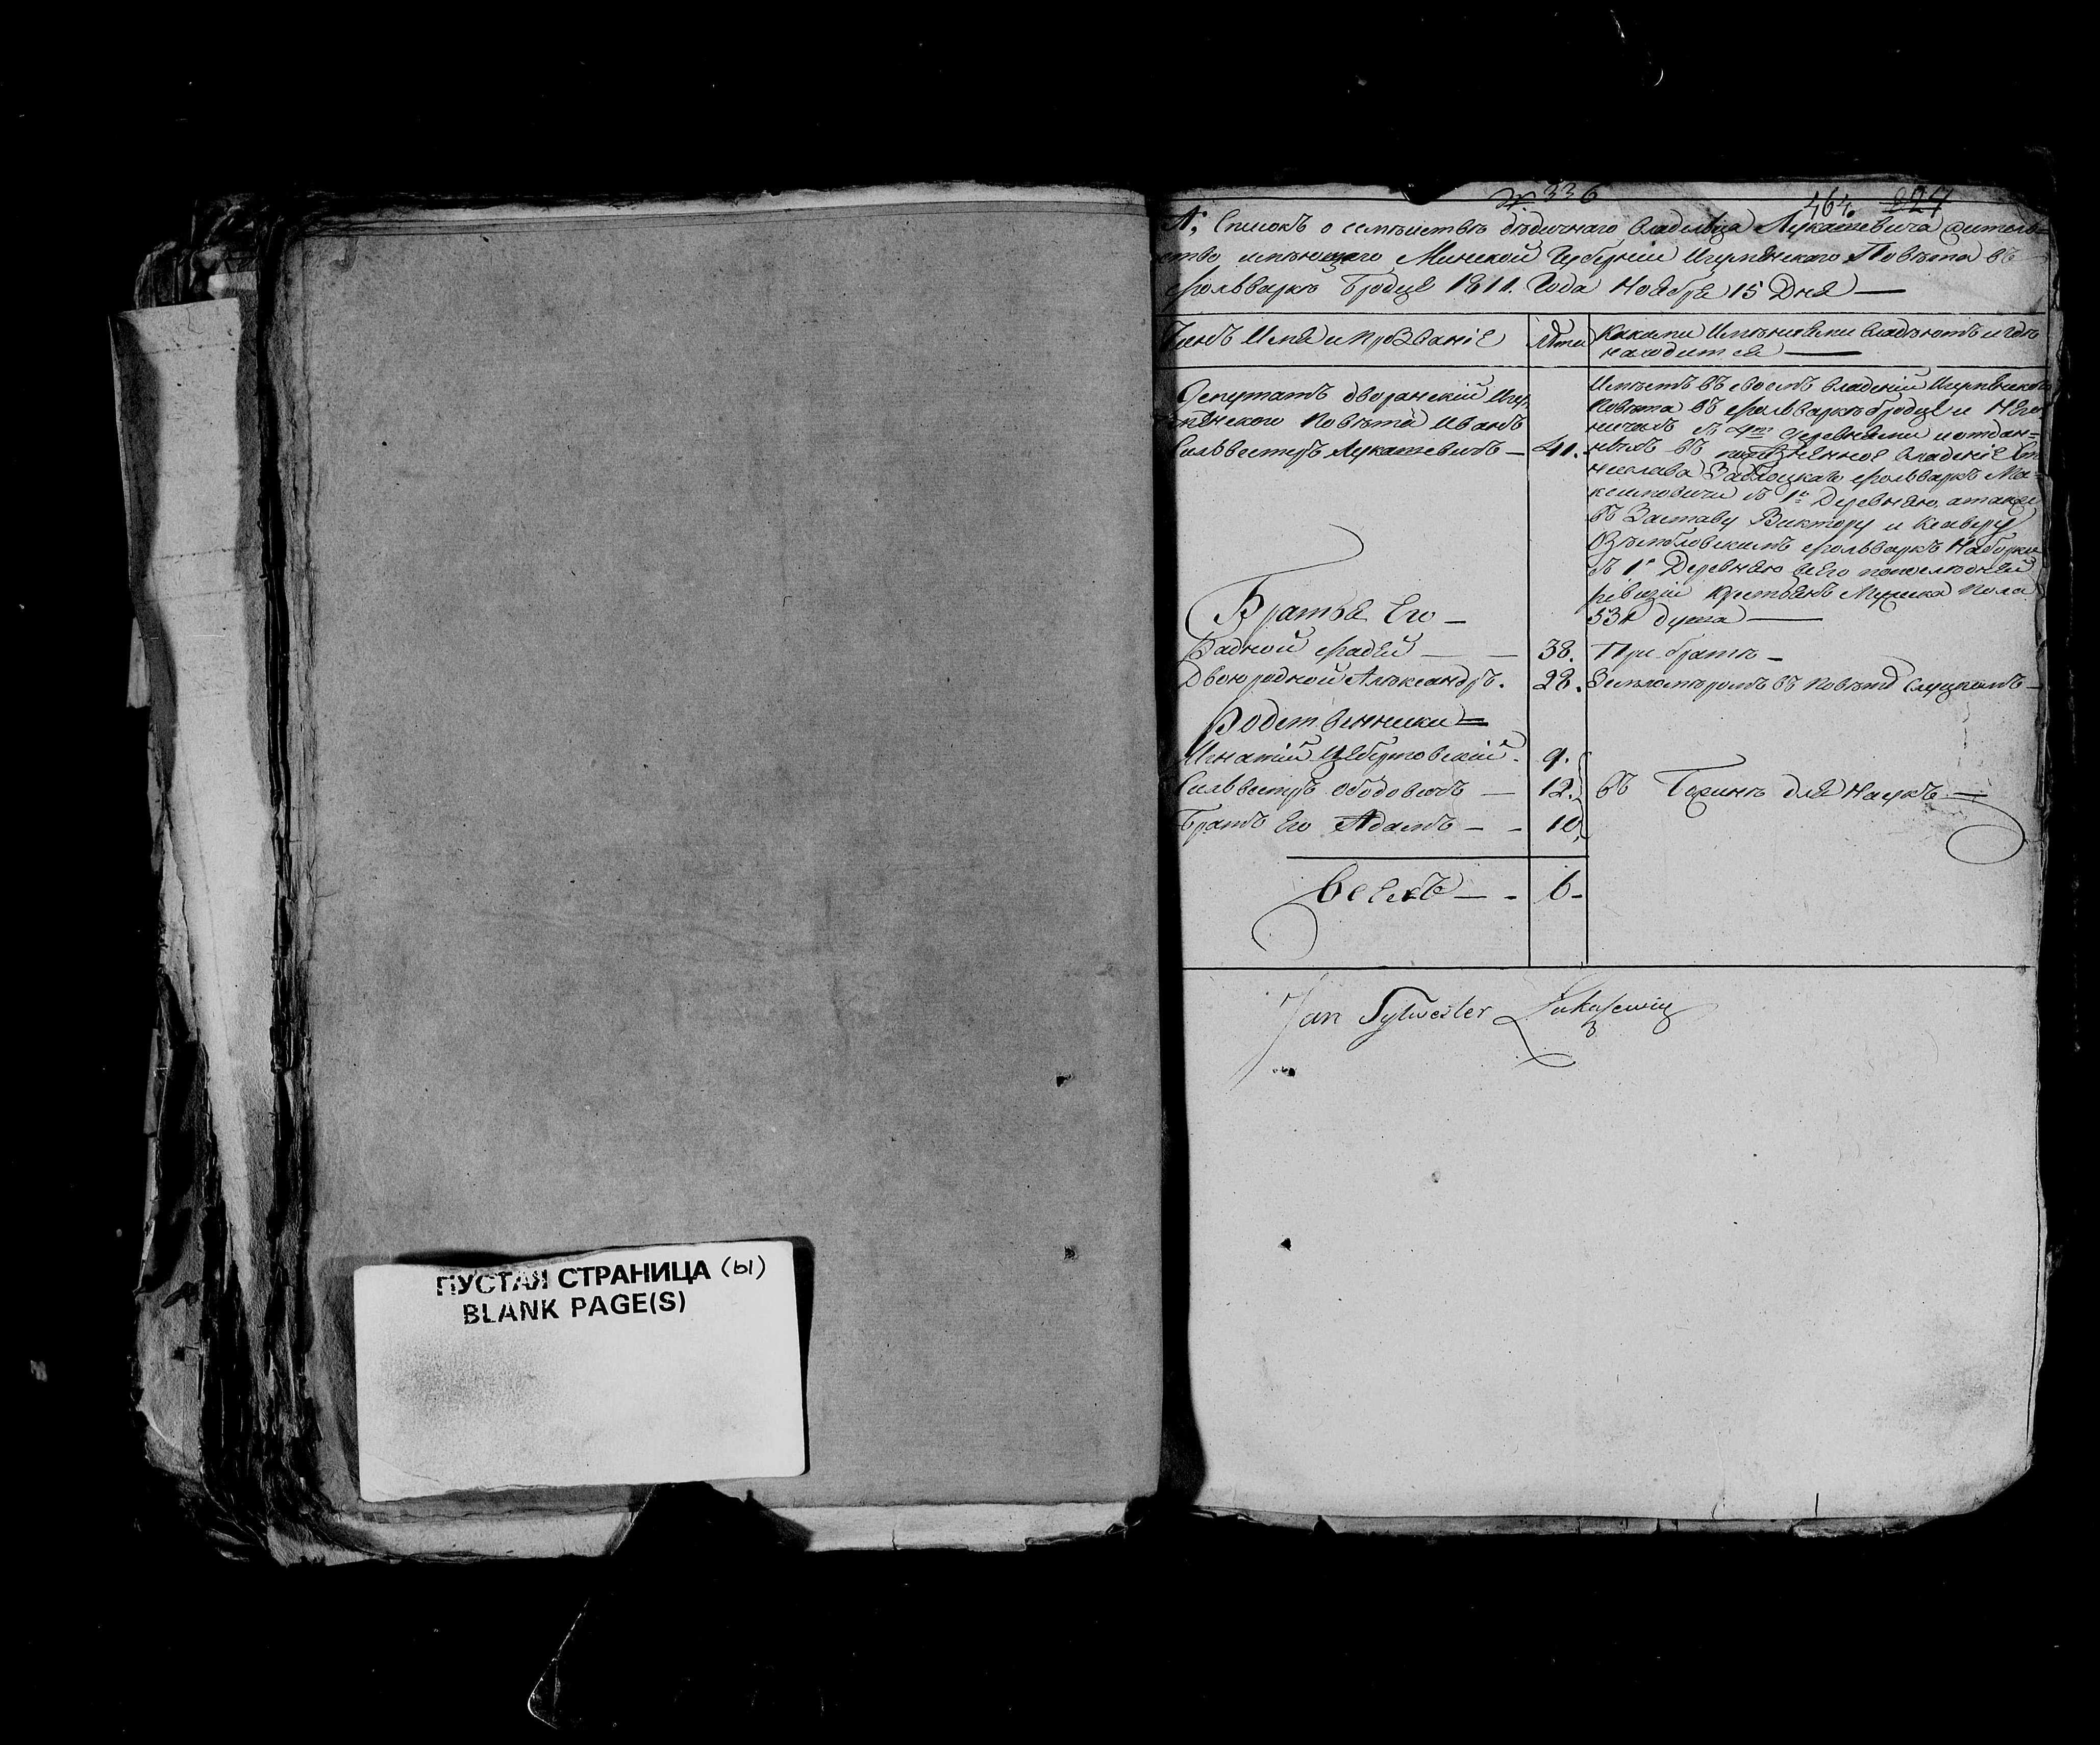 ПУСТАЯ СТРАНИЦА (ы)
BLANK PAGE(S)
336
464. 227
Списокъ о семействѣ дѣдичнаго владельца Лукашевича житель=
ство имѣющаго Минской Губерніи Игуменскаго Повѣта въ
фольваркѣ Бродце 1811. Года Ноября 15 Дня —
Чинъ Имя и прозваніе
Лѣта
Какими Имѣніями владѣютъ и гдѣ
находится —
Депутатъ дворанскій Игу
менского Повѣта Иванъ
Сильвестеръ Лукашевичъ — 41.
Имѣетъ въ своемъ владеніи Игуменского
Повѣта въ фольваркѣ Бродце и
съ 4мя деревнями и отдан=
ныхъ въ владеніе
фольваркъ Ма=
ксимовичи съ 1ю Деревнею, а также
въ Заставу Виктору и Ксаверу
фольваркъ Наборки
съ 1ю Деревнею всего по последней
ревизіи крестьянъ Мужеска пола
531 душа —
Братья Его —
Радной Фадей — — 38. При братѣ —
Двоюродной Александръ. 28. Землемѣромъ въ Повѣте Слуцкомъ —
Родственники =
Игнатій 9.
Сильвестръ Ободовичъ — 12. въ для Наукъ —
Братъ Его Адамъ — - 10
Всехъ — - 6-
Jan Sylwester Łukasewicz